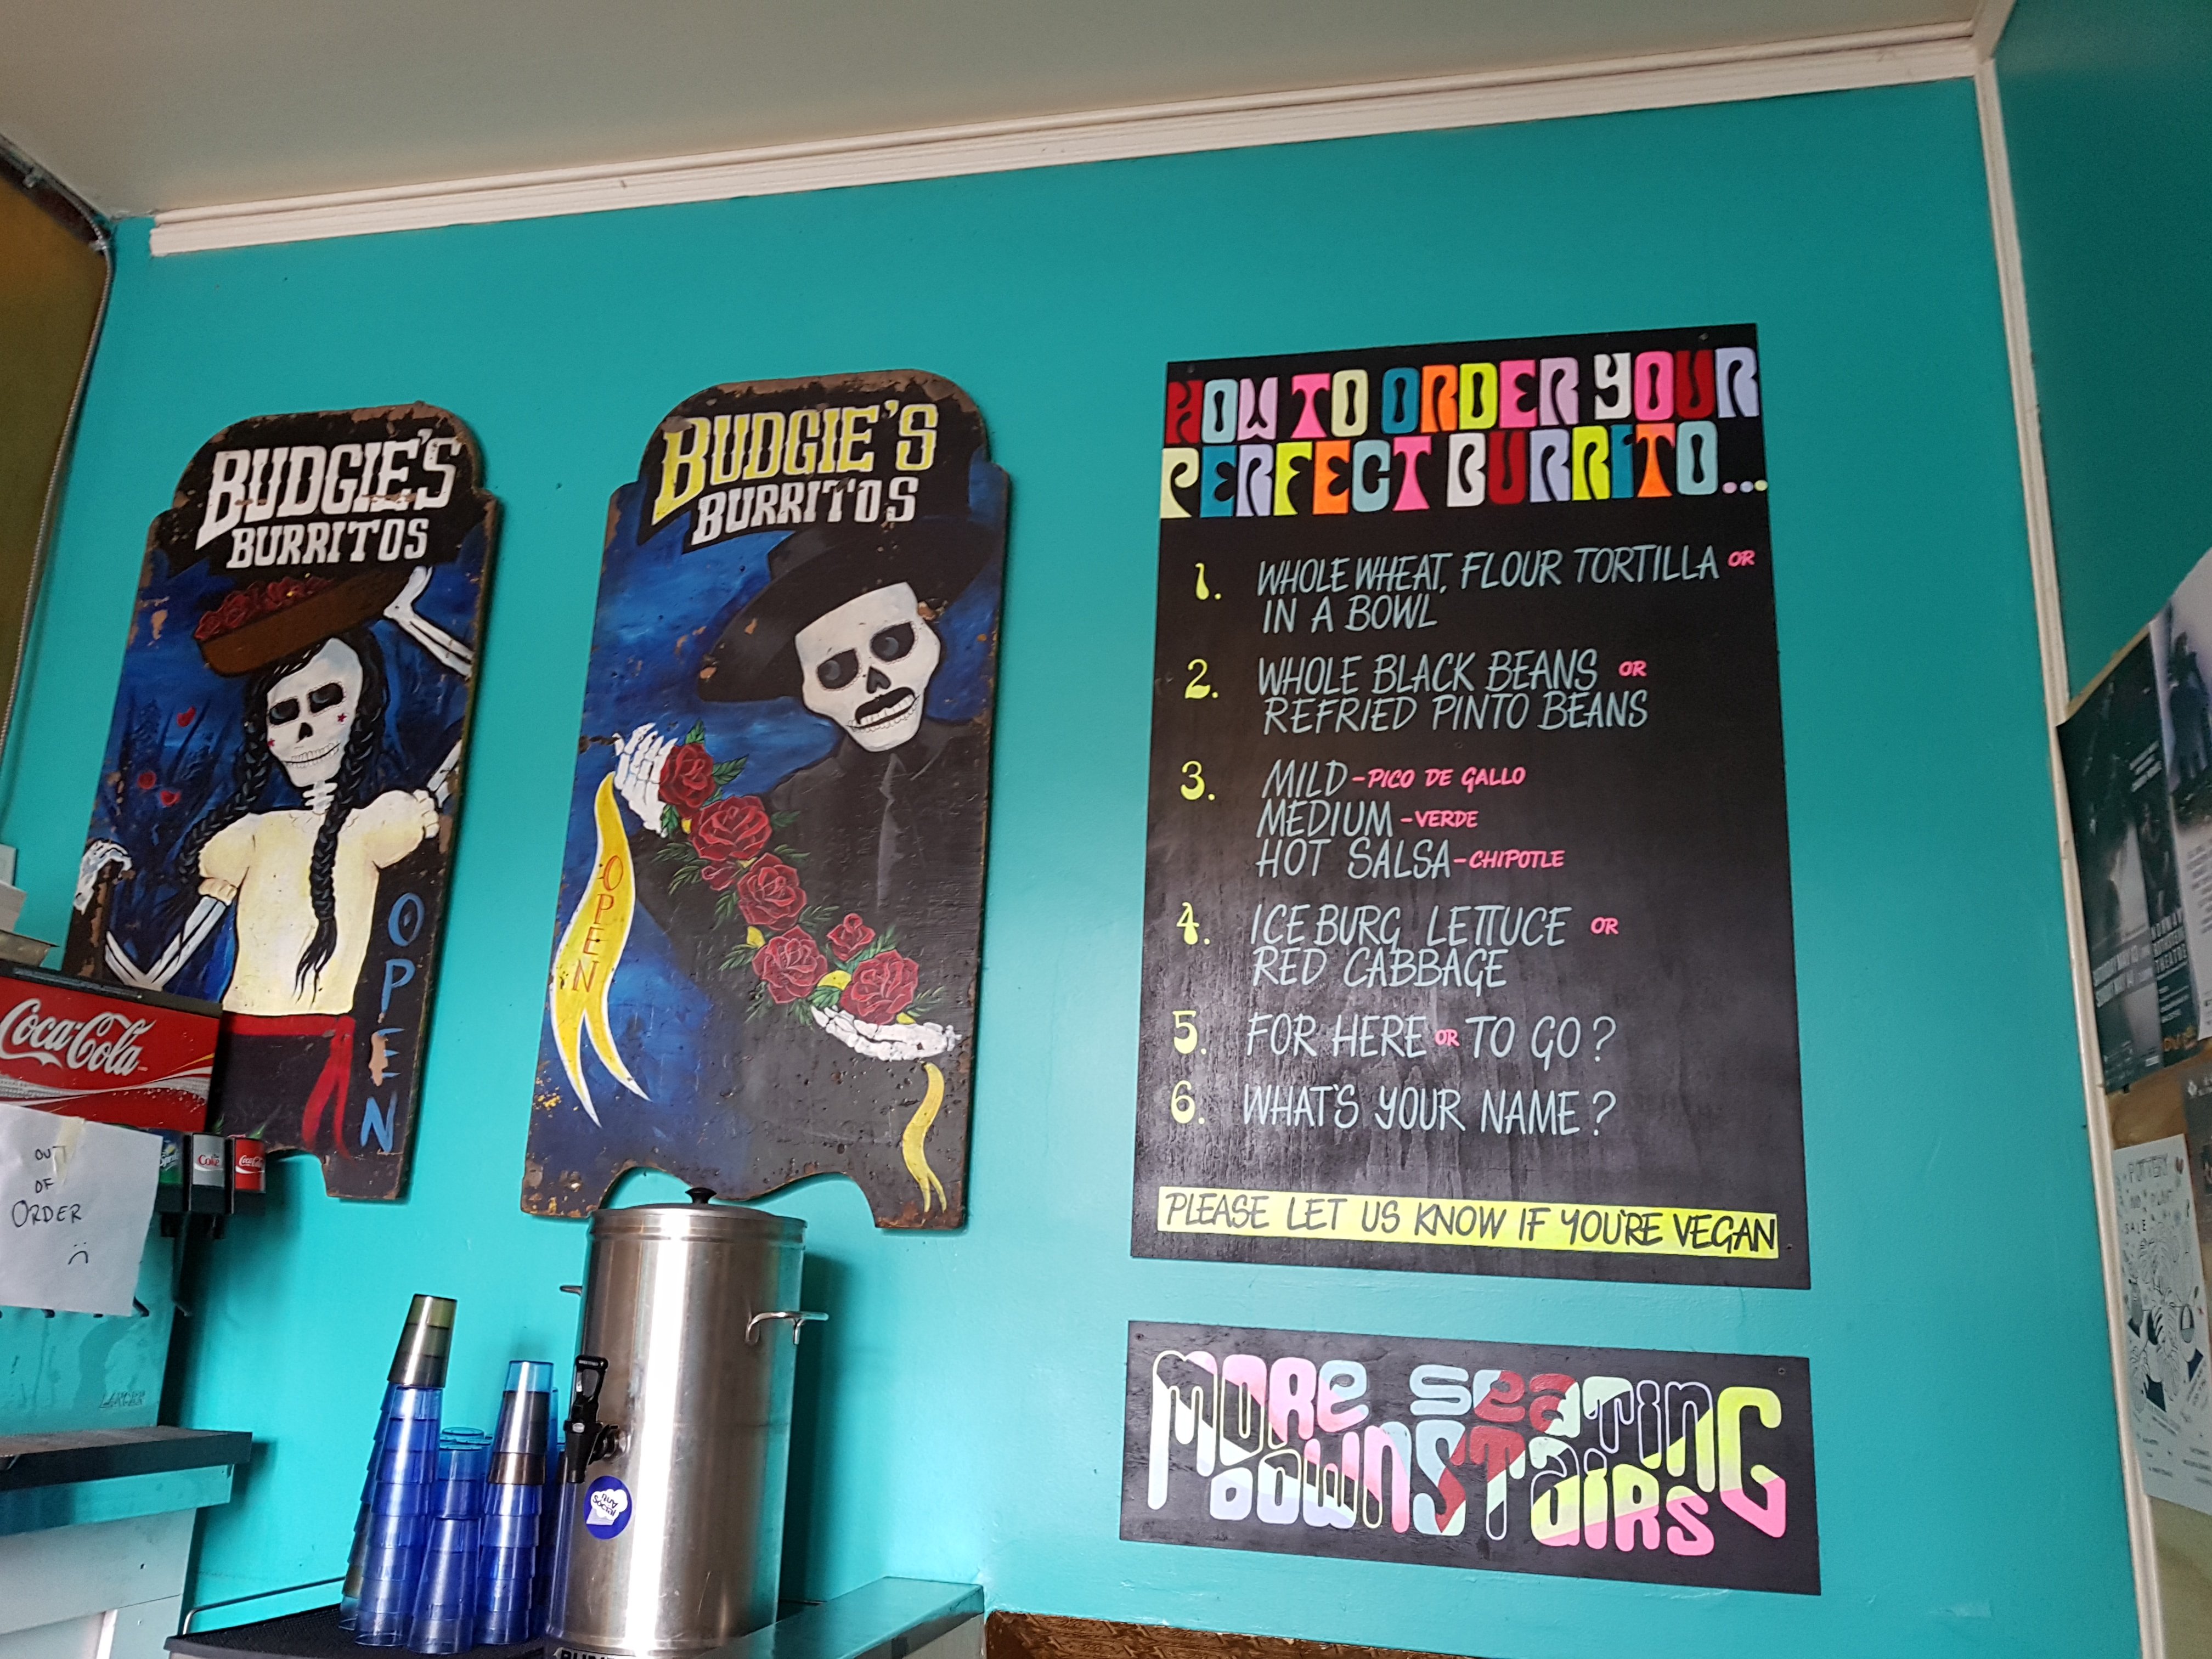 BUDGIE'S
BURRITOS
OPEN
BUDGIE'S
BURRITOS
OPEN
HOW TO ORDER YOUR
PERFECT BURRITO...
1. WHOLE WHEAT, FLOUR TORTILLA OR
IN A BOWL
2. WHOLE BLACK BEANS OR
REFRIED PINTO BEANS
3. MILD - PICO DE GALLO
MEDIUM - VERDE
HOT SALSA - CHIPOTLE
4. ICE BURG LETTUCE OR
RED CABBAGE
5. FOR HERE OR TO GO?
6. WHAT'S YOUR NAME?
PLEASE LET US KNOW IF YOU'RE VEGAN
MORE SEATING
DOWNSTAIRS
Coca-Cola
OUT
OF
ORDER
Sprite
Coke
Coca-Cola
LANCER